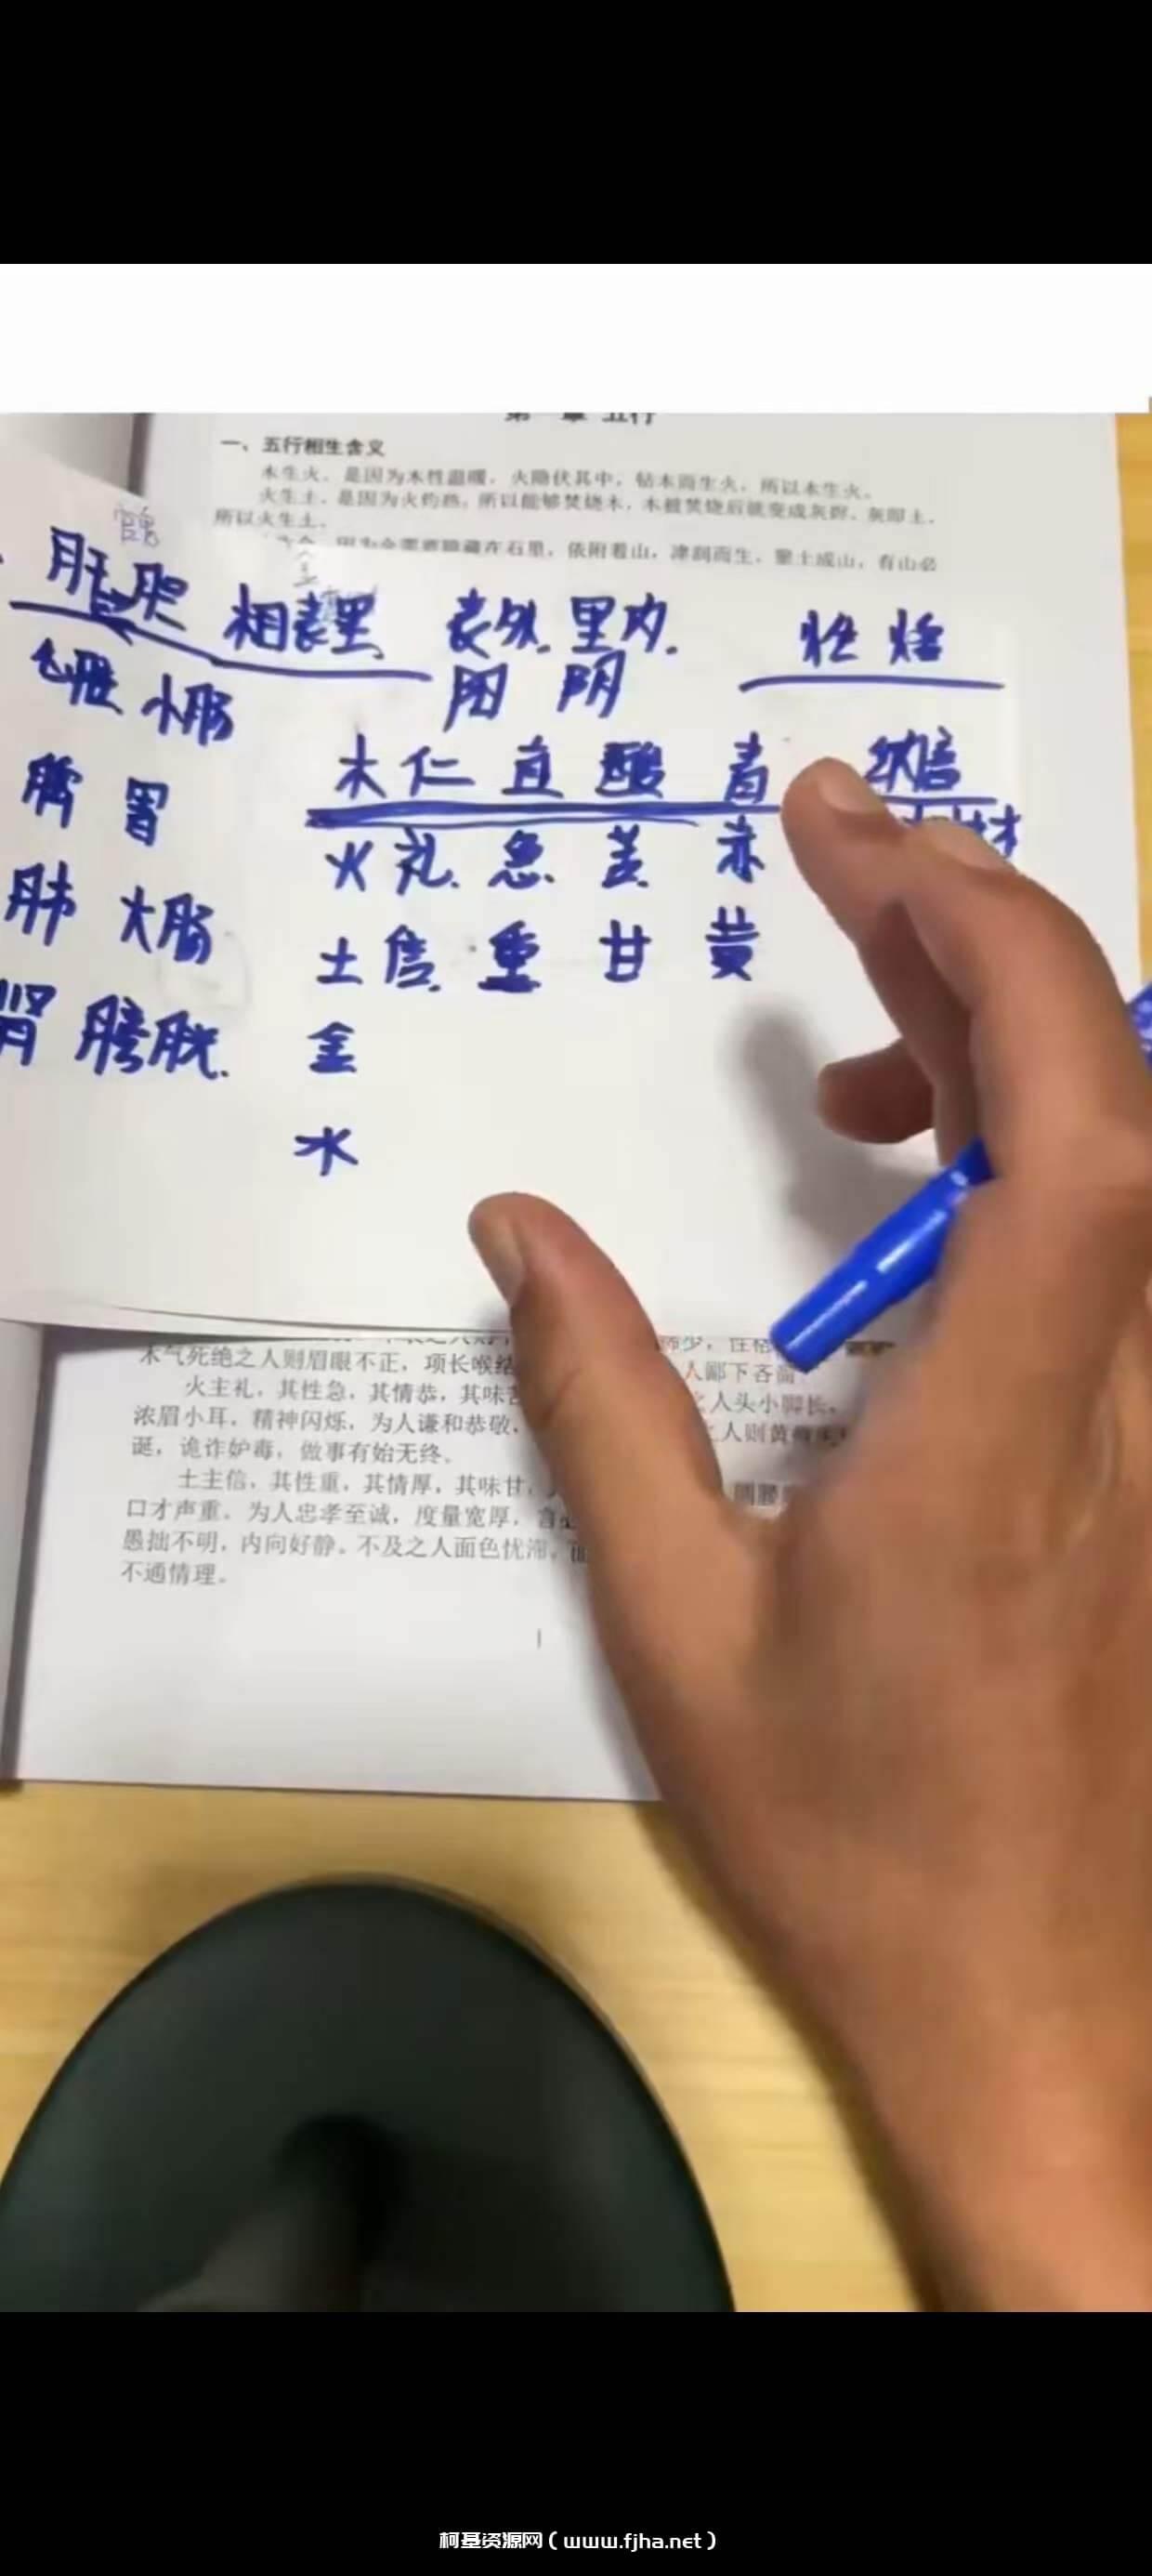 第一章 五行
一、五行相生含义
木生火，是因为木性温暖，火隐伏其中，钻木而生火，所以木生火。
火生土，是因为火灼热，所以能够焚烧木，木被焚烧后就变成灰烬，灰即土，
所以火生土。
因为金需要隐藏在石里，依附着山，津润而生，聚土成山，有山必
肝胆 相表里 表外 里内
阳 阴
小肠
脾 胃
肺 大肠
肾 膀胱
木 仁 直 酸 青
火 礼 急 苦 赤
土 信 重 甘 黄
金
水
木气死绝之人则眉眼不正，项长喉结 人鄙下吝啬
火主礼，其性急，其情恭，其味苦 之人头小脚长，
浓眉小耳，精神闪烁，为人谦和恭敬， 之人则黄
诞，诡诈妒毒，做事有始无终。
土主信，其性重，其情厚，其味甘，
口才声重。为人忠孝至诚，度量宽厚，言必
愚拙不明，内向好静。不及之人面色忧滞，
不通情理。
柯基资源网（www.fjha.net）